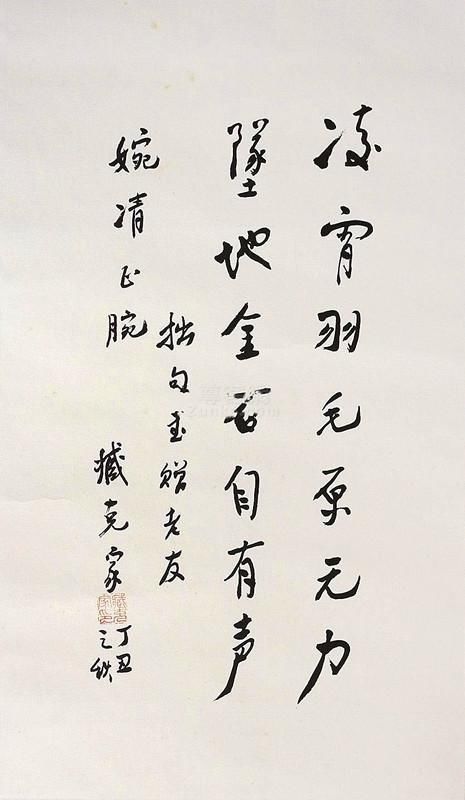 凌霄羽毛原无力
墜地金石自有声
拙句书赠老友
婉清正腕
臧克家
丁丑之秋